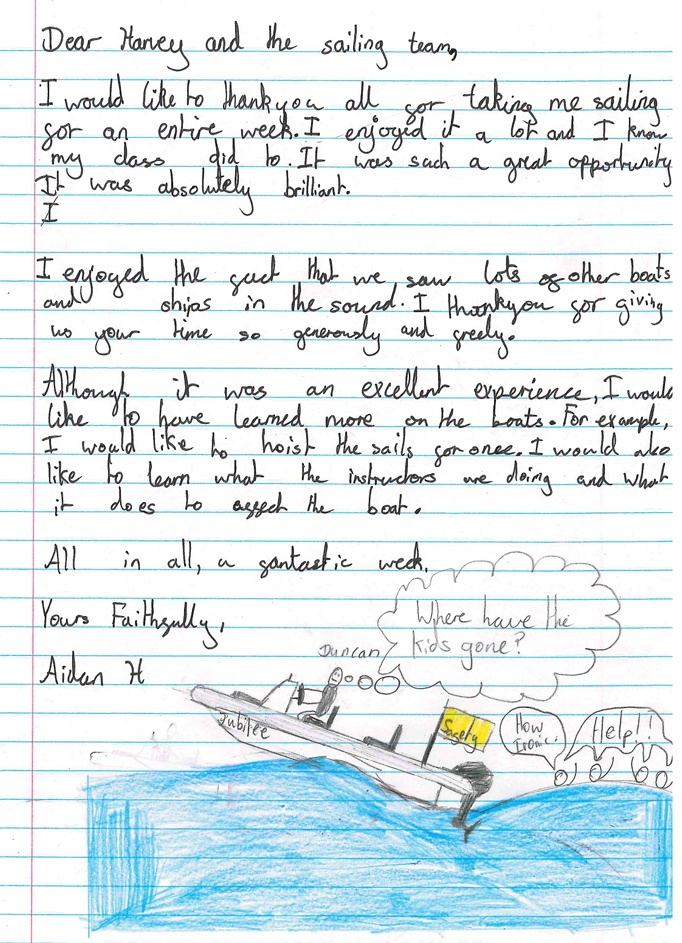 Dear Harvey and the sailing team,
I would like to thankyou all for taking me sailing
for an entire week. I enjoyed it a lot and I know
my class did to. It was such a great opportunity
It was absolutely brilliant.
I
I enjoyed the fact that we saw lots of other boats
and ships in the sound. I thankyou for giving
us your time so generously and freely.
Although it was an excellent experience, I would
like to have learned more on the boats. For example,
I would like to hoist the sails for once. I would also
like to learn what the instructors are doing and what
it does to affect the boat.
All in all, a fantastic week.
Yours Faithfully,
Aidan H
Where have the
kids gone?
Duncan
Jubilee
Safety
How
Ironic.
Help!!